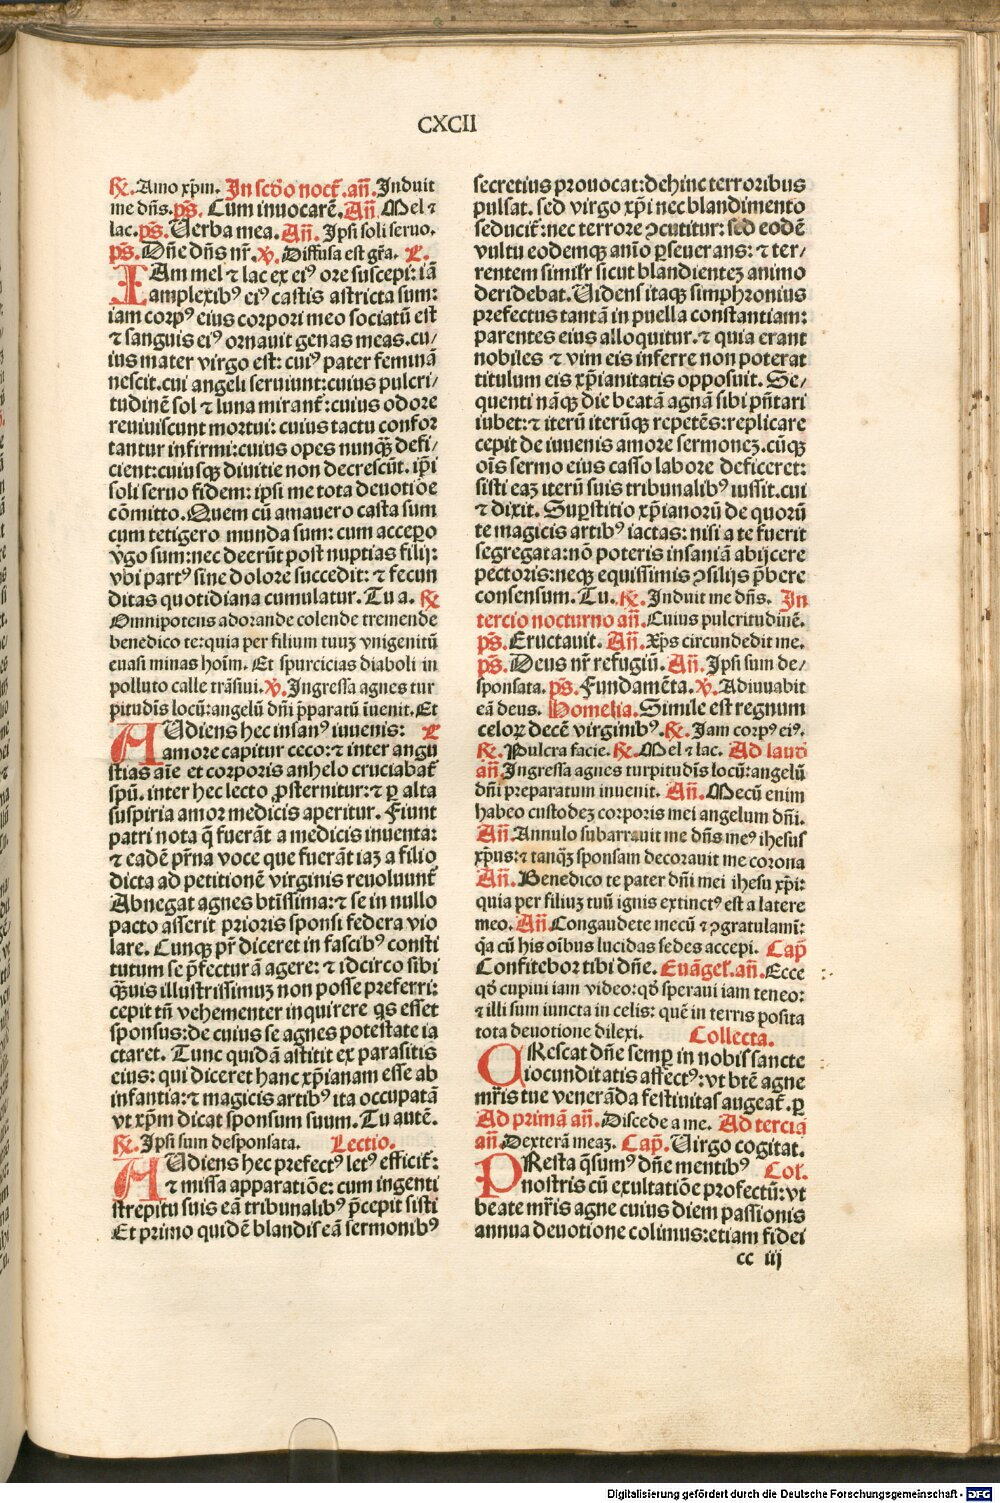 CXCII
℟. Amo xp̄m. In sc̄do noct̄. an̄. Induit
me dn̄s. ps̄. Cum inuocarē. An̄ Mel ⁊
lac. ps̄. Uerba mea. An̄. Ipsi soli seruo.
ps̄. Dn̄e dn̄s nr̄. ℣. Diffusa est gr̄a. ł.
IAm mel ⁊ lac ex eiꝰ ore suscepi: iā
amplexibꝰ eiꝰ castis astricta sum:
iam corpꝰ eius corpori meo sociatū est
⁊ sanguis eiꝰ ornauit genas meas. cu/
ius mater virgo est: cuiꝰ pater feminā
nescit. cui angeli seruiunt: cuius pulcri/
tudinē sol ⁊ luna mirant̄: cuius odore
reuiuiscunt mortui: cuius tactu confor
tantur infirmi: cuius opes nunqꝫ̄ defi/
cient: cuiusqꝫ diuitie non decrescūt. ip̄i
soli seruo fidem: ipsi me tota deuotiōe
cōmitto. Quem cū amauero casta sum
cum tetigero munda sum: cum accepo
v̄go sum: nec deerūt post nuptias filij:
vbi partꝰ sine dolore succedit: ⁊ fecun
ditas quotidiana cumulatur. Tu a. ℟
Omnipotens adorande colende tremende
benedico te: quia per filium tuuꝫ vnigenitū
euasi minas hoīm. Et spurcicias diaboli in
polluto calle trāsiui. ℣. Ingressa agnes tur
pitudīs locū: angelū dn̄i p̄paratū īuenit. Et
AUdiens hec insanꝰ iuuenis: ł
amore capitur ceco: ⁊ inter angu
stias aīe et corporis anhelo cruciabat̄
spū. inter hec lecto ꝓsternitur: ⁊ ꝑ alta
suspiria amor medicis aperitur. Fiunt
patri nota q̄ fuerāt a medicis inuenta:
⁊ eadē pr̄na voce que fuerāt iaꝫ a filio
dicta ad petitionē virginis reuoluunt̄
Abnegat agnes btīssima: ⁊ se in nullo
pacto asserit prioris sponsi federa vio
lare. Cunqꝫ pr̄ diceret in fascibꝰ consti
tutum se p̄fecturā agere: ⁊ idcirco sibi
qꝫ̄uis illustrissimuꝫ non posse preferri:
cepit tn̄ vehementer inquirere qs esset
sponsus: de cuius se agnes potestate ia
ctaret. Tunc quidā astitit ex parasitis
eius: qui diceret hanc xp̄ianam esse ab
infantia: ⁊ magicis artibꝰ ita occupatā
vt xp̄m dicat sponsum suum. Tu autē.
℟. Ipsi sum desponsata. Lectio.
AUdiens hec prefectꝰ letꝰ efficit̄:
⁊ missa apparatiōe: cum ingenti
strepitu suis eā tribunalibꝰ p̄cepit sisti
Et primo quidē blandis eā sermonibꝰ
secretius prouocat: dehinc terroribus
pulsat. sed virgo xp̄i nec blandimento
seducit̄: nec terrore ꝯcutitur: sed eodē
vultu eodemqꝫ anīo ꝑseuerans: ⁊ ter/
rentem simil̄r sicut blandienteꝫ animo
deridebat. Uidens itaqꝫ simphronius
prefectus tantā in puella constantiam:
parentes eius alloquitur. ⁊ quia erant
nobiles ⁊ vim eis inferre non poterat
titulum eis xp̄ianitatis opposuit. Se/
quenti nāqꝫ die beatā agnā sibi pn̄tari
iubet: ⁊ iterū iterūqꝫ repetēs: replicare
cepit de iuuenis amore sermoneꝫ. cūqꝫ
oīs sermo eius casso labore deficeret:
sisti eaꝫ iterū suis tribunalibꝰ iussit. cui
⁊ dixit. Suꝑstitio xp̄ianorū de quorū
te magicis artibꝰ iactas: nisi a te fuerit
segregata: nō poteris insaniā abijcere
pectoris: neqꝫ equissimis ꝯsilijs p̄bere
consensum. Tu. ℟. Induit me dn̄s. In
tercio nocturno an̄. Cuius pulcritudinē.
ps̄. Eructauit. An̄. Xp̄s circundedit me.
ps̄. Deus nr̄ refugiū. An̄. Ipsi sum de/
sponsata. ps̄. Fundamēta. ℣. Adiuuabit
eā deus. Homelia. Simile est regnum
celoꝝ decē virginibꝰ. ℟. Iam corpꝰ eiꝰ.
℟. Pulcra facie. ℟. Mel ⁊ lac. Ad laud̄
an̄. Ingressa agnes turpitudīs locū: angelū
dn̄i preparatum inuenit. An̄. Mecū enim
habeo custodeꝫ corporis mei angelum dn̄i.
An̄. Annulo subarrauit me dn̄s meꝰ ihesus
xp̄us: ⁊ tanqꝫ̄ sponsam decorauit me corona
An̄. Benedico te pater dn̄i mei ihesu xp̄i:
quia per filiuꝫ tuū ignis extinctꝰ est a latere
meo. An̄. Congaudete mecū ⁊ ꝯgratulamī:
q̄a cū his oībus lucidas sedes accepi. Cap̄
Confitebor tibi dn̄e. Euāgel̄. an̄. Ecce
qd̄ cupiui iam video: qd̄ speraui iam teneo:
⁊ illi sum iuncta in celis: quē in terris posita
tota deuotione dilexi. Collecta.
CRescat dn̄e semꝑ in nobis sancte
iocunditatis affectꝰ: vt btē agne
mr̄is tue venerāda festiuitas augeat̄. ꝑ
Ad primā an̄. Discede a me. Ad tercia
an̄. Dexterā meaꝫ. Cap̄. Uirgo cogitat.
PResta q̄sumꝰ dn̄e mentibꝰ Col.
nostris cū exultatiōe profectū: vt
beate mr̄is agne cuius diem passionis
annua deuotione colimus: etiam fidei
cc iij
Digitalisierung gefördert durch die Deutsche Forschungsgemeinschaft - DFG